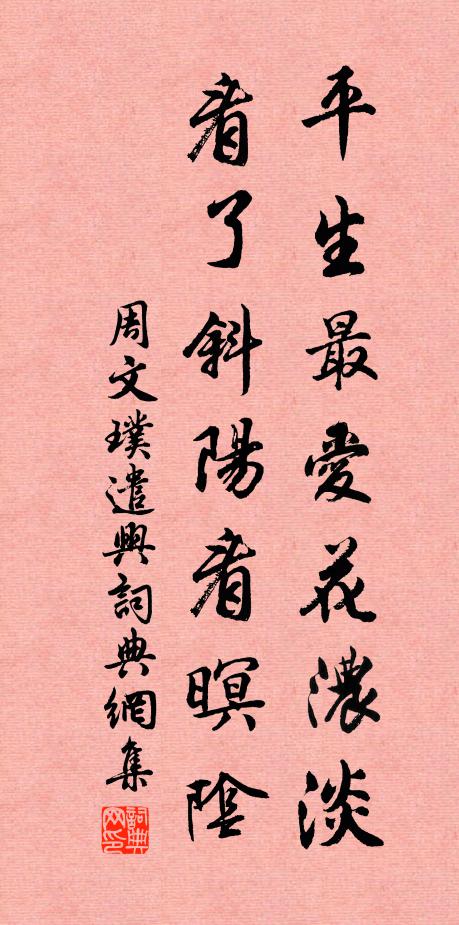 平生最愛花濃淡
看了斜陽看暝陰
周文璞遣興詞典網集
詞典网印